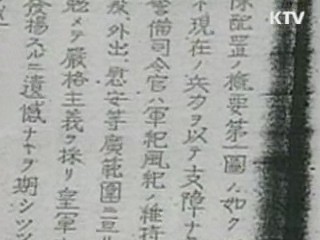 KTV
保配置ノ概要第一圖ノ如ク
不現在ノ兵力ヲ以テ支障ナ
警備司令官ハ軍紀風紀ノ維持
外出、慰安等廣範圍ニ亘ル
メテ嚴格主義ヲ採リ皇軍
發揚スルニ遺憾ナキヲ期シツツ